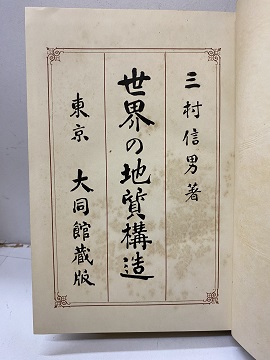 三村信男著
世界の地質構造
東京 大同館蔵版